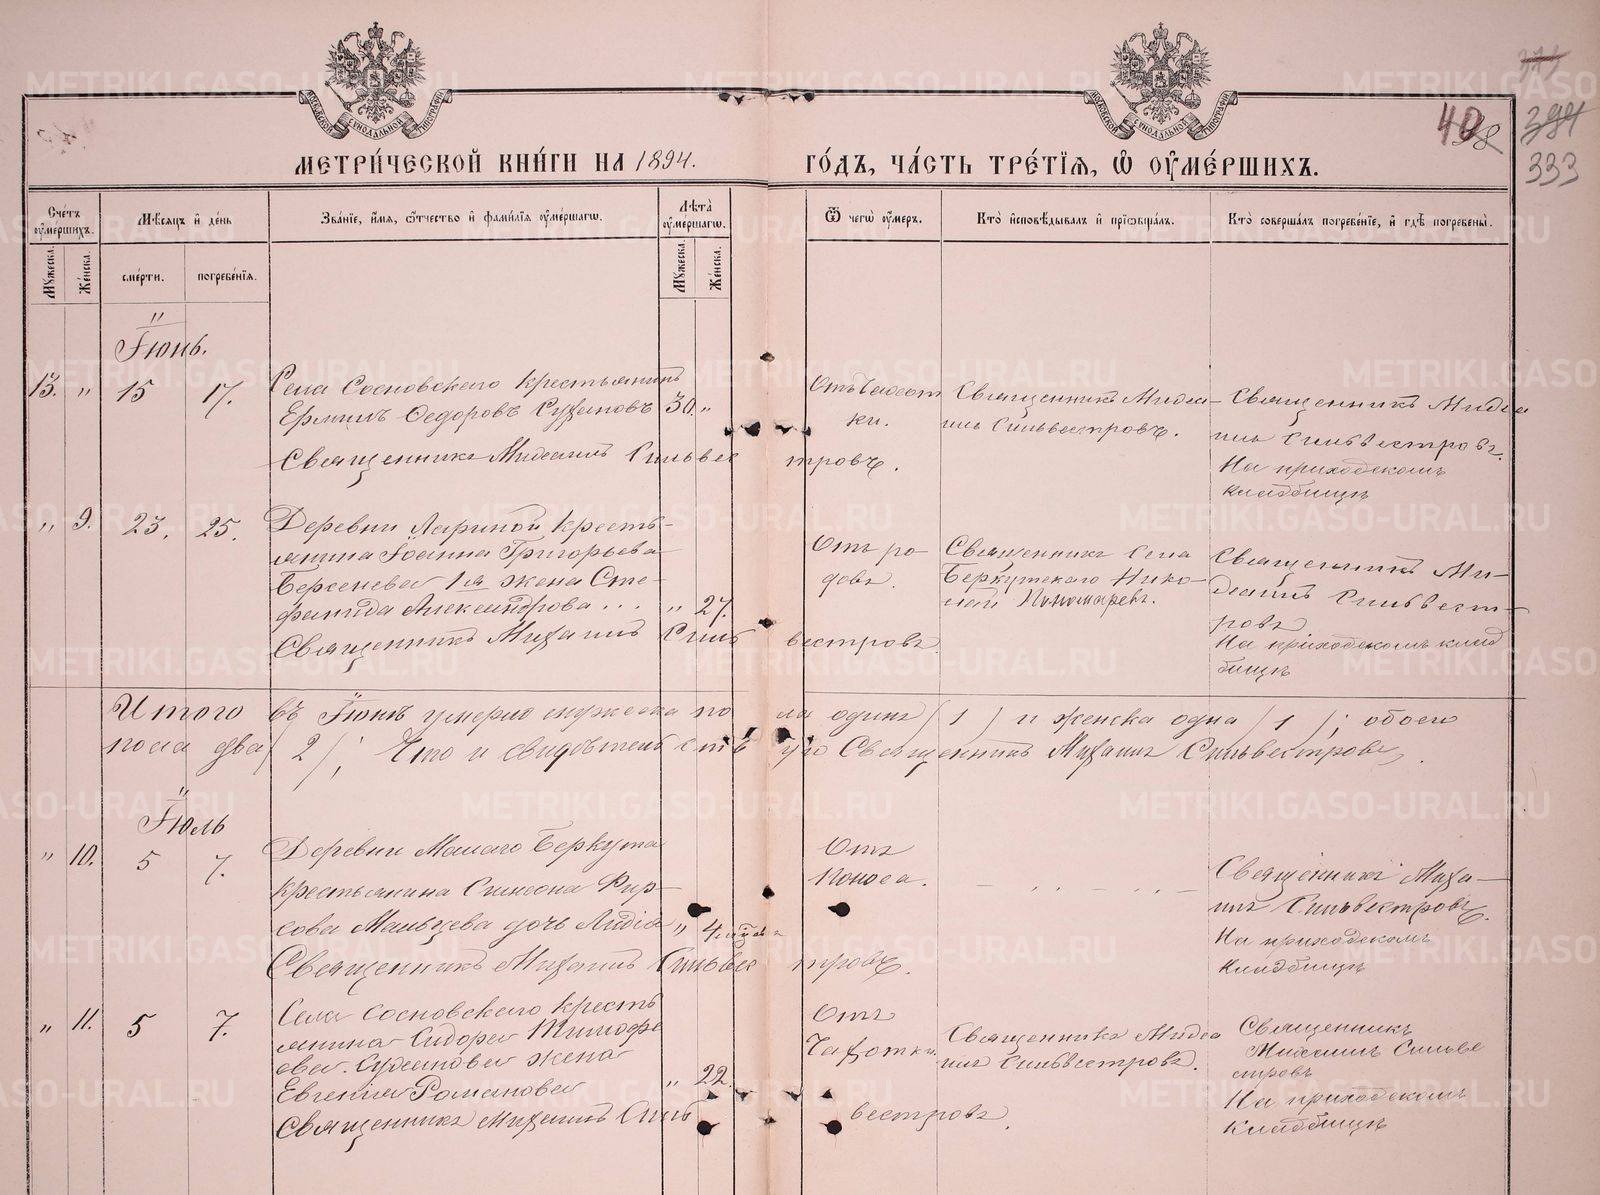 МОСКОВСКОЙ СѴНОДАЛЬНОЙ ТИПОГРАФІИ
МОСКОВСКОЙ СѴНОДАЛЬНОЙ ТИПОГРАФІИ
40
394
333
МЕТРИ́ЧЕСКОЙ КНИ́ГИ НА 1894. ГО́ДЪ, ЧА́СТЬ ТРЕ́ТІЯ, Ѡ ОУМЕ́РШИХЪ.
Сче́тъ оуме́ршихъ.
Мѣсяцъ и де́нь
Зва́ніе, и́мя, ѻ́тчество и фами́лія оуме́ршагѡ.
Лѣта̀ оуме́ршагѡ.
Ѿ чегѡ̀ оу́меръ.
Кто̀ исповѣ́дывалъ и пріѡбща́лъ.
Кто̀ соверша́лъ погребе́ніе, и гдѣ̀ погребены̀.
Му́жеска.
Же́нска.
сме́рти.
погребе́нія.
Му́жеска.
Же́нска.
Іюнь.
13. " 15 17.
Села Сосновскаго крестьянинъ
Ермилъ Ѳедоровъ Сухановъ 30. "
Священникъ Михаилъ Сильвестровъ.
Отъ чахотки.
Священникъ Михаилъ Сильвестровъ.
Священникъ Михаилъ Сильвестровъ.
На приходскомъ
кладбищѣ
" 9. 23. 25.
Деревни Лариной кресть-
янина Іоанна Григорьева
Берсенева 1я жена Сте-
фанида Александрова ... " 27.
Священникъ Михаилъ Сильвестровъ
Отъ ро-
довъ.
Священникъ села
Беркутскаго Нико-
лай Пономаревъ.
Священникъ Ми-
хаилъ Сильвест-
ровъ
На приходскомъ клад
бищѣ
Итого въ Іюнѣ умерло мужеска пола одинъ (1) и женска одна (1); обоего
пола два (2); Что и свидѣтельствую Священникъ Михаилъ Сильвестровъ.
Іюль
" 10. 5 7.
Деревни Малаго Беркута
крестьянина Симеона Фир-
сова Мальцева дочь Лидія " 4 мѣсяца
Священникъ Михаилъ Сильвестровъ.
Отъ
поноса.
Священникъ Миха-
илъ Сильвестровъ.
На приходскомъ
кладбищѣ
" 11. 5 7.
Села Сосновскаго кресть
янина Сидора Тимофе
ева Суханова жена
Евгенія Романова " 22.
Священникъ Михаилъ Сильвестровъ.
Отъ
чахотки.
Священникъ Михаилъ Сильвестровъ.
Священникъ
Михаилъ Сильве
стровъ
На приходскомъ
кладбищѣ
METRIKI.GASO-URAL.RU